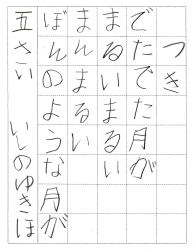 つき
でたでた月が
まるいまるい
まんまるい
ぼんのような月が
五さい いしのゆきほ